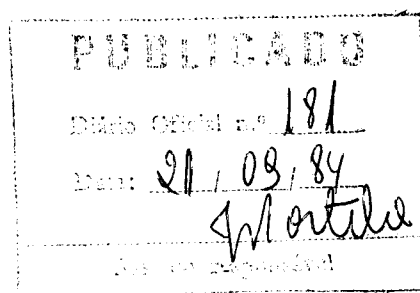 PUBLICADO
Diário Oficial n.º 181
Data: 21 / 09 / 84